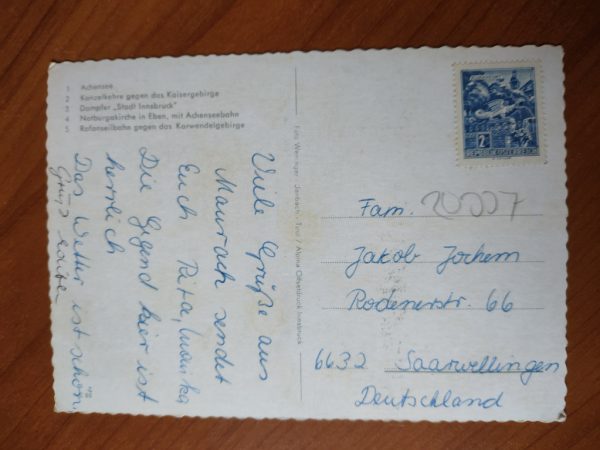 1 Achensee
2 Kanzelkehre gegen das Kaisergebirge
3 Dampfer „Stadt Innsbruck"
4 Notburgakirche in Eben, mit Achenseebahn
5 Rofanseilbahn gegen das Karwendelgebirge
Viele Grüße aus
Maurach sendet
Euch Rita, Monika
Die Gegend hier ist
herrlich
Das Wetter ist schön
Gruß
Foto Jenbach - Tirol / Alpina Offsetdruck Innsbruck
2
REPUBLIK ÖSTERREICH
Fam. 20007
Jakob Jochem
Rodenerstr. 66
6632 Saarwellingen
Deutschland